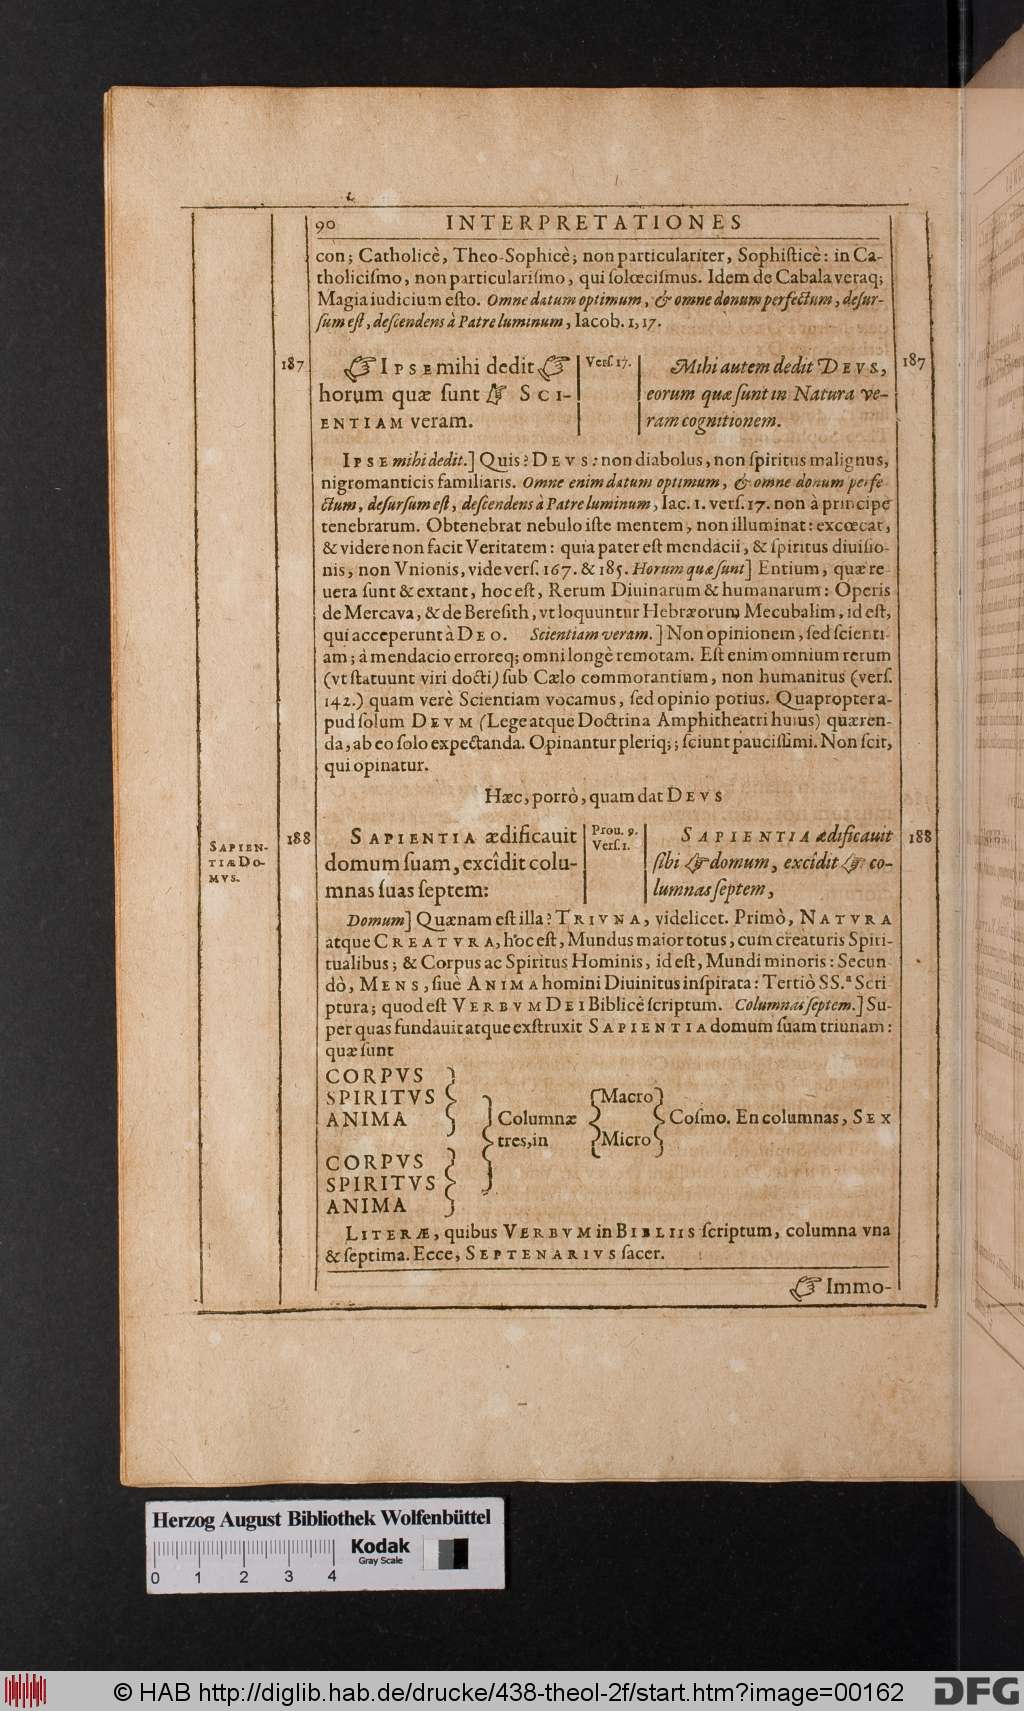 90 INTERPRETATIONES
con; Catholicè, Theo-Sophicè; non particulariter, Sophiſticè: in Ca-
tholiciſmo, non particulariſmo, qui ſolœciſmus. Idem de Cabala veraq;
Magia iudicium eſto. Omne datum optimum, & omne donum perfectum, deſur-
ſum eſt, deſcendens à Patre luminum, Iacob. 1, 17.
187 ☞ IPSE mihi dedit ☞
horum quæ ſunt ☞ SCI-
ENTIAM veram.
Verſ. 17.
Mihi autem dedit DEVS, 187
eorum quæ ſunt in Natura ve-
ram cognitionem.
IPSE mihi dedit.] Quis? DEVS: non diabolus, non ſpiritus malignus,
nigromanticis familiaris. Omne enim datum optimum, & omne donum perfe
ctum, deſurſum eſt, deſcendens à Patre luminum, Iac. 1. verſ. 17. non à principe
tenebrarum. Obtenebrat nebulo iſte mentem, non illuminat: excœcat,
& videre non facit Veritatem: quia pater eſt mendacii, & ſpiritus diuiſio-
nis, non Vnionis, vide verſ. 167. & 185. Horum quæ ſunt] Entium, quæ re
uera ſunt & extant, hoc eſt, Rerum Diuinarum & humanarum: Operis
de Mercava, & de Bereſith, vt loquuntur Hebræorum Mecubalim, id eſt,
qui acceperunt à DEO. Scientiam veram.] Non opinionem, ſed ſcienti
am; à mendacio erroreq; omni longè remotam. Eſt enim omnium rerum
(vt ſtatuunt viri docti) ſub Cælo commorantium, non humanitus (verſ.
142.) quam verè Scientiam vocamus, ſed opinio potius. Quapropter a-
pud ſolum DEVM (Lege atque Doctrina Amphitheatri huius) quæren-
da, ab eo ſolo expectanda. Opinantur pleriq;; ſciunt pauciſſimi. Non ſcit,
qui opinatur.
Hæc, porrò, quam dat DEVS
SAPIEN-
TIÆ DO-
MVS.
188 SAPIENTIA ædificauit
domum ſuam, excîdit colu-
mnas ſuas ſeptem:
Prou. 9.
Verſ. 1.
SAPIENTIA ædificauit 188
ſibi ☞ domum, excîdit ☞ co-
lumnas ſeptem,
Domum] Quænam eſt illa? TRIVNA, videlicet. Primò, NATVRA
atque CREATVRA, hoc eſt, Mundus maior totus, cum creaturis Spiri-
tualibus; & Corpus ac Spiritus Hominis, id eſt, Mundi minoris: Secun
dò, MENS, ſiuè ANIMA homini Diuinitus inſpirata: Tertiò SS.ª Scri
ptura; quod eſt VERBVM DEI Biblicè ſcriptum. Columnas ſeptem.] Su-
per quas fundauit atque exſtruxit SAPIENTIA domum ſuam triunam:
quæ ſunt
CORPVS
SPIRITVS
ANIMA
CORPVS
SPIRITVS
ANIMA
Columnæ
tres, in
Macro
Micro
Coſmo. En columnas, SEX
LITERÆ, quibus VERBVM in BIBLIIS ſcriptum, columna vna
& ſeptima. Ecce, SEPTENARIVS ſacer.
☞ Immo-
Herzog August Bibliothek Wolfenbüttel
Kodak
Gray Scale
0 1 2 3 4
© HAB http://diglib.hab.de/drucke/438-theol-2f/start.htm?image=00162
DFG